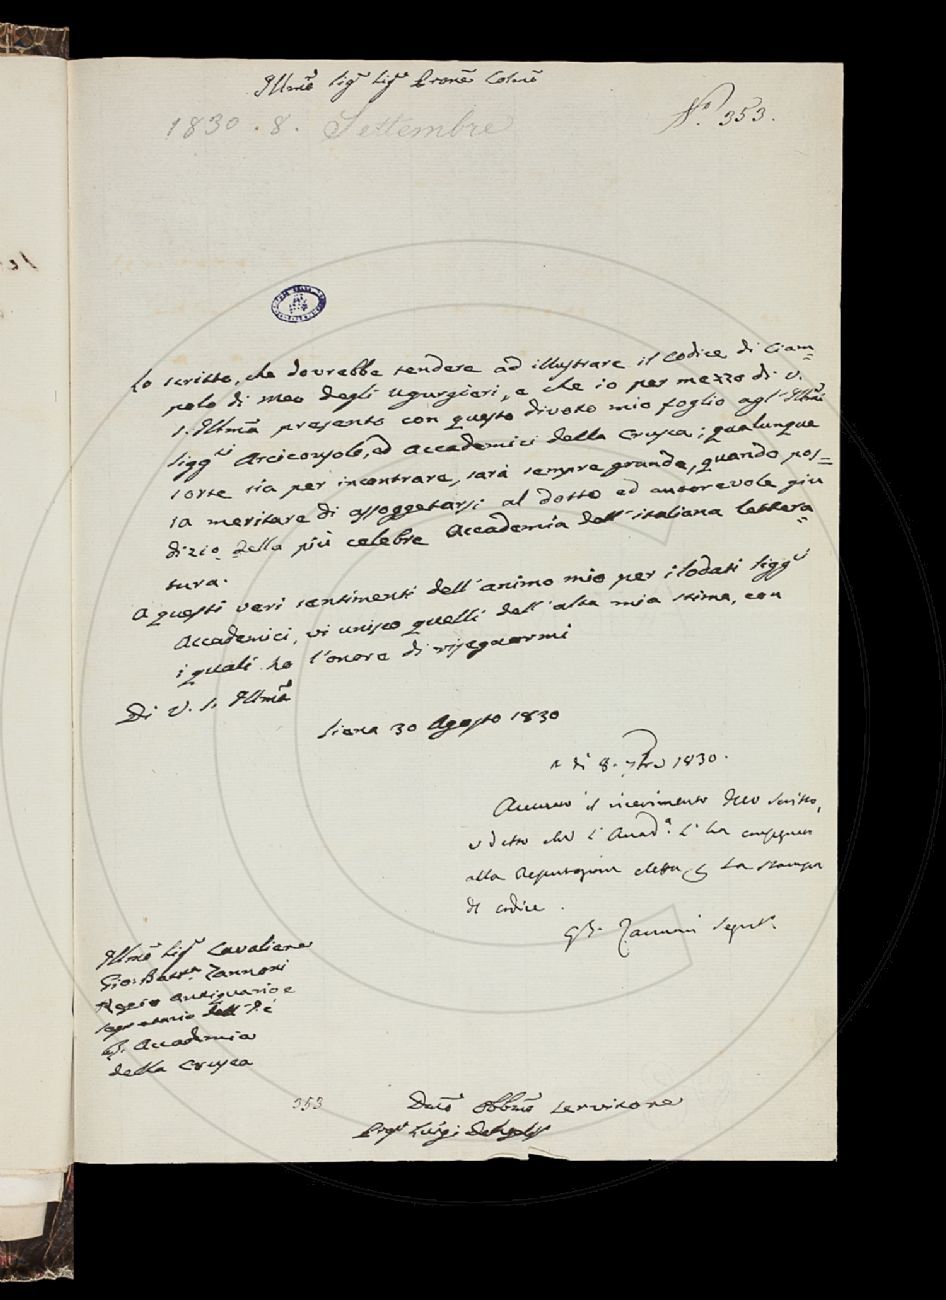 Illmõ Sigr Sigr Prone Colmõ
1830. 8. Settembre
No. 353.
Lo scritto, che dovrebbe tendere ad illustrare il Codice di Ciam=
polo di Meo degli Ugurgieri, e che io per mezzo di V.
S. Illmã presento con questo divoto mio foglio agl' Illmi
Siggri Arciconsolo, ed Accademici della Crusca; qualunque
sorte sia per incontrare, sarà sempre grande, quando pos=
sa meritare di assoggettarsi al dotto ed autorevole giu
dizio della più celebre Accademia dell'italiana lettera=
tura.
A questi veri sentimenti dell'animo mio per i lodati Siggri
Accademici, vi unisco quelli dell'alta mia stima, con
i quali ho l'onore di rissegnarmi
Di V. S. Illmã
Siena 30 Agosto 1830
A di 8. 7bre 1830.
Accusato il ricevimento dello scritto,
e detto che l'Accada. l'ha consegnato
alla Deputazione eletta per la stampa
del codice.
GB. Zannoni Segret.
Illmõ Sigr Cavaliere
Gio: Batta. Zannoni
Regio Antiquario e
Segretario dell'I. e
R. Accademia
della Crusca
353
Devmõ Obblmõ Servitore
Luigi De Angelis